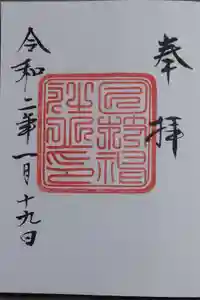 奉拝
令和二年一月十九日